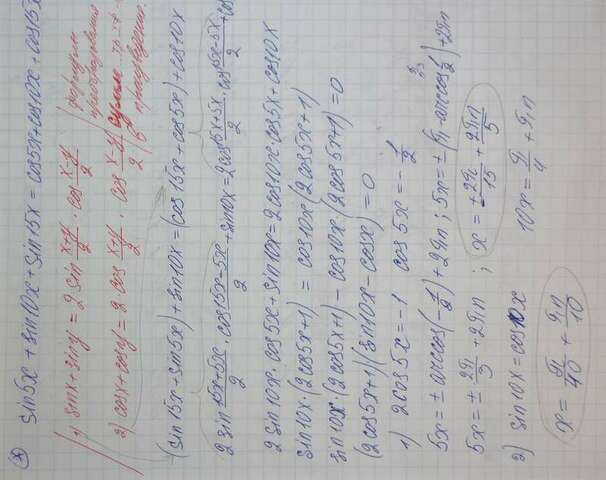 sin5x + sin10x + sin15x = cos5x + cos10x + cos15x
1) sinx + siny = 2 sin (x+y)/2 · cos (x-y)/2
2) cosx + cosy = 2 cos (x+y)/2 · cos (x-y)/2
формулы
преобразования
суммы
в произведение.
(sin15x + sin5x) + sin10x = (cos15x + cos5x) + cos10x
2 sin (15x+5x)/2 · cos (15x-5x)/2 + sin10x = 2 cos (15x+5x)/2 · cos (15x-5x)/2 + cos
2 sin10x · cos5x + sin10x = 2 cos10x · cos5x + cos10x
sin10x · (2cos5x+1) = cos10x (2cos5x+1)
sin10x · (2cos5x+1) - cos10x (2cos5x+1) = 0
(2cos5x+1)(sin10x - cosx) = 0
1) 2cos5x = -1 cos5x = -1/2
5x = ± arccos(-1/2) + 2πn ; 5x = ±(π - arccos(1/2)) + 2πn
5x = ± 2π/3 + 2πn ; x = ± 2π/15 + 2πn/5
2) sin10x = cos10x 10x = π/4 + πn
x = π/40 + πn/10